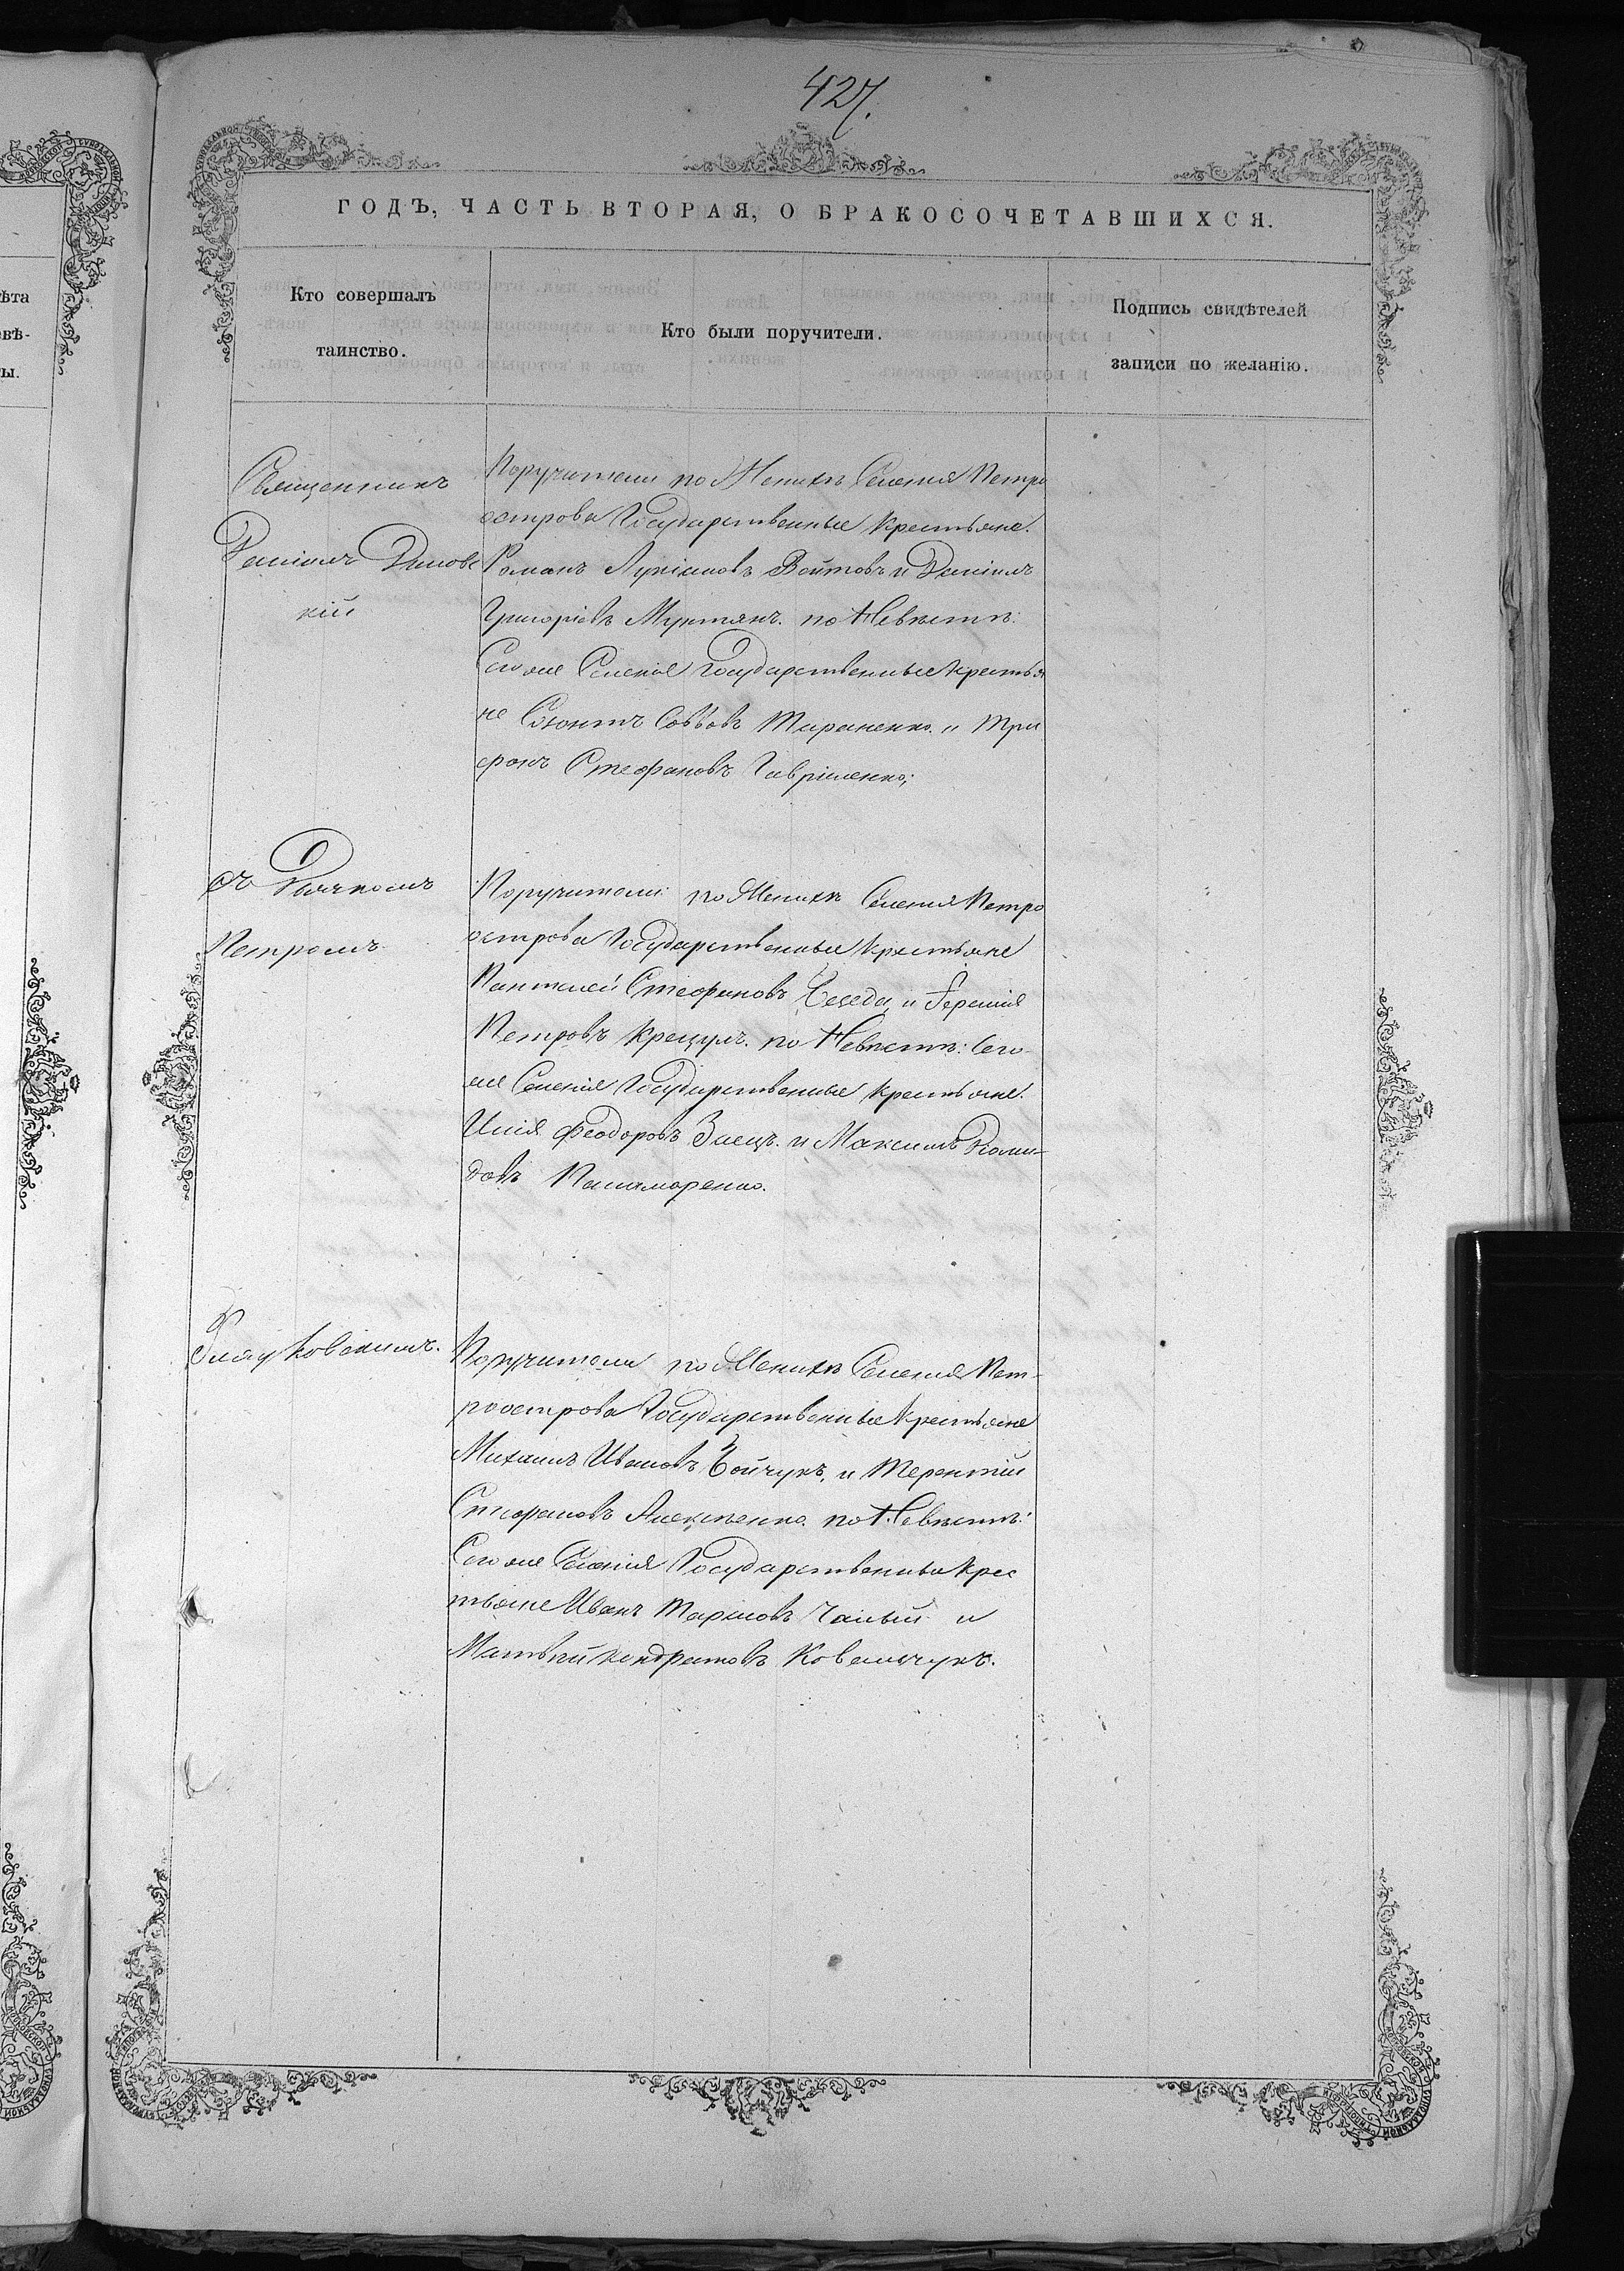 427.
ГОДЪ, ЧАСТЬ ВТОРАЯ, О БРАКОСОЧЕТАВШИХСЯ.
Кто совершалъ
таинство.
Кто были поручители.
Подпись свидѣтелей
записи по желанію.
Священникъ
Даніилъ
кій
Поручители по Женихѣ Селенія Петро
острова Государственные Крестьяне.
Романъ Лукіановъ Войтовъ и Даніилъ
Григоріевъ Мунтянъ. по Невѣстѣ:
Сего же Селенія Государственные Крестья
не Савовъ Тараненко. и Три
фонъ Стефановъ Гавриленко;
съ Дьячкомъ
Петромъ
Поручители по Женихѣ Селенія Петро
острова Государственные Крестьяне
Пантелей Стефановъ и Іеремія
Петровъ Крецулъ. по Невѣстѣ: Сего
же Селенія Государственные Крестьяне.
Илія Феодоровъ Заецъ. и Максимъ
довъ
Поручители по Женихѣ Селенія Пет-
роострова Государственные Крестьяне
Михаилъ Ивановъ Бойчукъ, и Терентій
Стефановъ Алексѣенко. по Невѣстѣ:
Сего же Селенія Государственные Крес
тьяне Иванъ Марковъ Чалый и
Матѳѣй Кондратовъ Ковальчукъ.